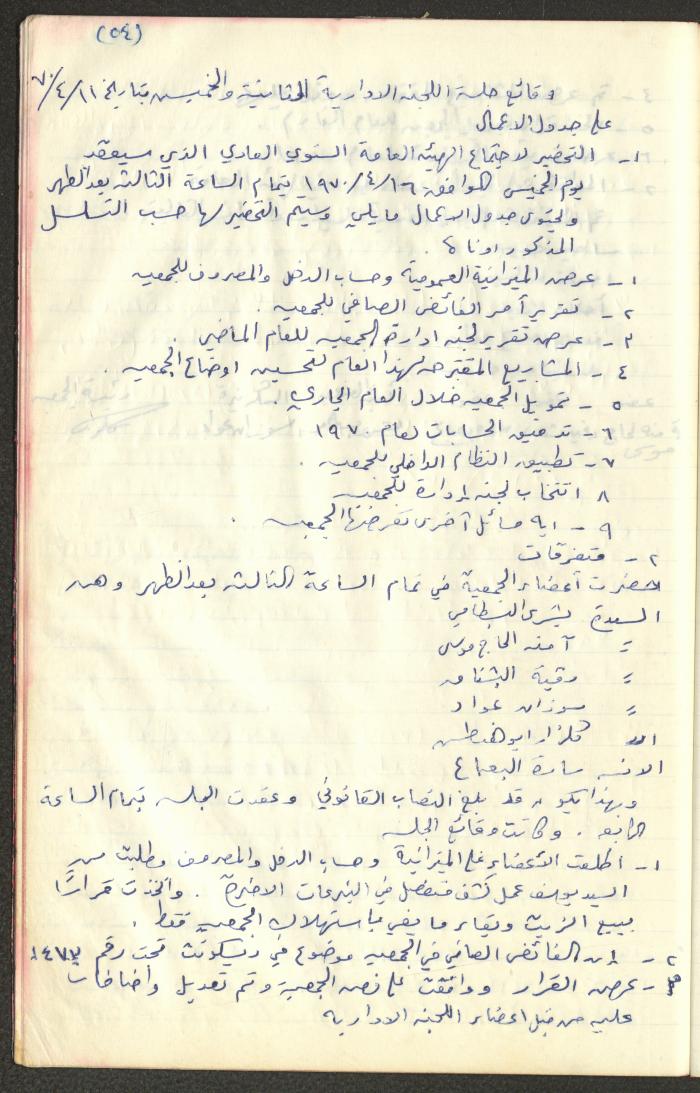 (٥٤)
وقائع جلسة اللجنة الادارية الثانية والخمسين بتاريخ ١١/٤/٧٠
على جدول الاعمال
١- التحضير لاجتماع الهيئة العامة السنوي العادي الذي سيعقد
يوم الخميس الموافق ١٦/٤/١٩٧٠ بتمام الساعة الثالثة بعد الظهر
ويحتوي جدول الاعمال ما يلي وسيتم التحضير لها حسب التسلسل
المذكور ادناه .
١- عرض الميزانية العمومية وحساب الدخل والمصروف للجمعيه
٢- تقرير أمر الفائض الصافي للجمعيه .
٣- عرض تقرير لجنه ادارة الجمعيه للعام الماضي .
٤- المشاريع المقترحه لهذا العام لتحسين اوضاع الجمعيه .
٥- تمويل الجمعيه خلال العام الجاري
٦- تدقيق الحسابات لعام ١٩٧٠
٧- تطبيق النظام الداخلي للجمعيه .
٨ انتخاب لجنه إدارة للجمعيه
٩- ايه مسائل آخرى تفرضها الجمعيه .
٢- متفرقات
حضرت أعضاء الجمعية في تمام الساعة الثالثه بعد الظهر وهن
السيدة بشرى البسطامي
= آمنه الحاج موسى
= رقية
= سوزان عواد
الانسه سارة
وبهذا يكون قد بلغ النصاب القانوني وعقدت الجلسه بتمام الساعة
الرابعه . وكانت وقائع الجلسه
١- اطلعت الأعضاء على الميزانية وحساب الدخل والمصروف وطلبت من
السيد يوسف عمل كشف مفصل في التبرعات الاخيرة . واتخذت قرارًا
ببيع الزيت وبقاء ما يفي باستهلاك الجمعيه فقط .
٢- إن الفائض الصافي في الجمعيه موضوع في تحت رقم
٣- عرض القرار ووافقت على نص الجمعية وتم تعديل واضافات
عليه من قبل اعضاء اللجنه الاداريه